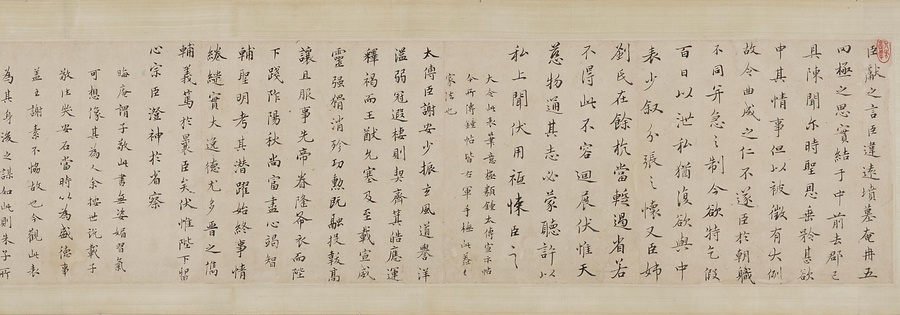 臣獻之言臣違遠墳墓奄冉五
罔極之思實結于中前去郡已
具陳聞尓時聖恩垂矜甚欲
申其情事但以被徵有大例
故令曲成之仁不遂臣於朝職
不同弃急之制今欲特乞假
百日以泄私猶復欲與中
表少叙分張之懷又臣姉
劉氏在餘杭當蹔過省若
不得此不容迴展伏惟天
慈物通其志必蒙聽許以
私上聞伏用祗悚臣之
大令此表筆意極類鍾太傅宣示帖
今所傳鍾帖皆右軍手摹此蓋
家法也
太傅臣謝安少振玄風道譽洋
溢弱冠遐棲則契齊箕皓應運
釋褐而王猷允塞及至載宣威
靈强猾消殄功勲既融投韍高
讓且服事先帝眷隆布衣而陛
下踐阼陽秋尚富盡心竭智
輔聖明考其潛躍始終事情
繾綣實大逸德尤多晉之儁
輔義篤於曩臣矣伏惟陛下留
心宗臣澄神於省察
晦庵謂子敬此書無姿媚習氣
可想像其為人余按世説載子
敬往與安石當時以為盛德事
蓋王謝素不協故也今觀此表
為其身後之謀如此則朱子所